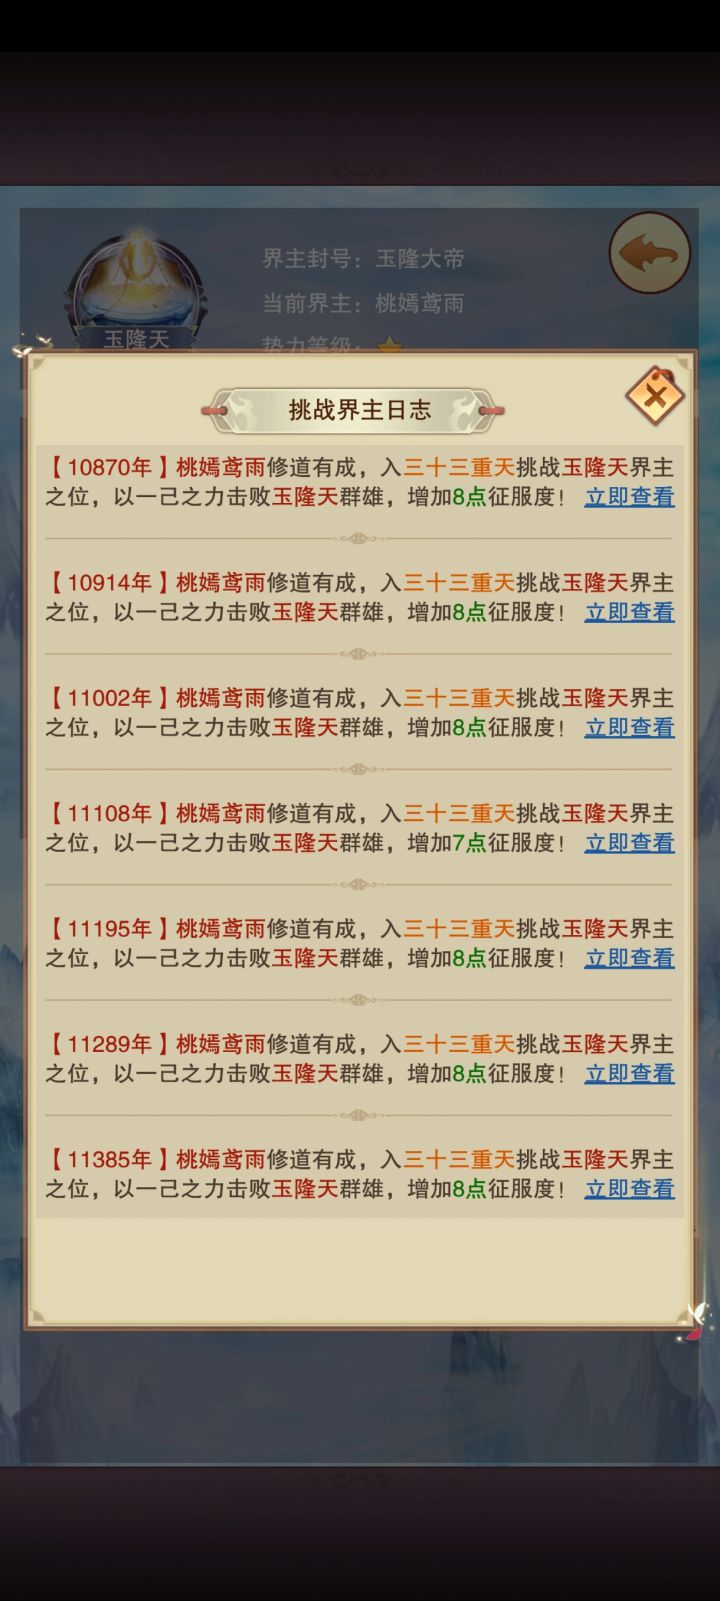 界主封号：玉隆大帝
当前界主：桃嫣鸢雨
势力等级：
玉隆天
挑战界主日志
【10870年】桃嫣鸢雨修道有成，入三十三重天挑战玉隆天界主
之位，以一己之力击败玉隆天群雄，增加8点征服度！ 立即查看
【10914年】桃嫣鸢雨修道有成，入三十三重天挑战玉隆天界主
之位，以一己之力击败玉隆天群雄，增加8点征服度！ 立即查看
【11002年】桃嫣鸢雨修道有成，入三十三重天挑战玉隆天界主
之位，以一己之力击败玉隆天群雄，增加8点征服度！ 立即查看
【11108年】桃嫣鸢雨修道有成，入三十三重天挑战玉隆天界主
之位，以一己之力击败玉隆天群雄，增加7点征服度！ 立即查看
【11195年】桃嫣鸢雨修道有成，入三十三重天挑战玉隆天界主
之位，以一己之力击败玉隆天群雄，增加8点征服度！ 立即查看
【11289年】桃嫣鸢雨修道有成，入三十三重天挑战玉隆天界主
之位，以一己之力击败玉隆天群雄，增加8点征服度！ 立即查看
【11385年】桃嫣鸢雨修道有成，入三十三重天挑战玉隆天界主
之位，以一己之力击败玉隆天群雄，增加8点征服度！ 立即查看